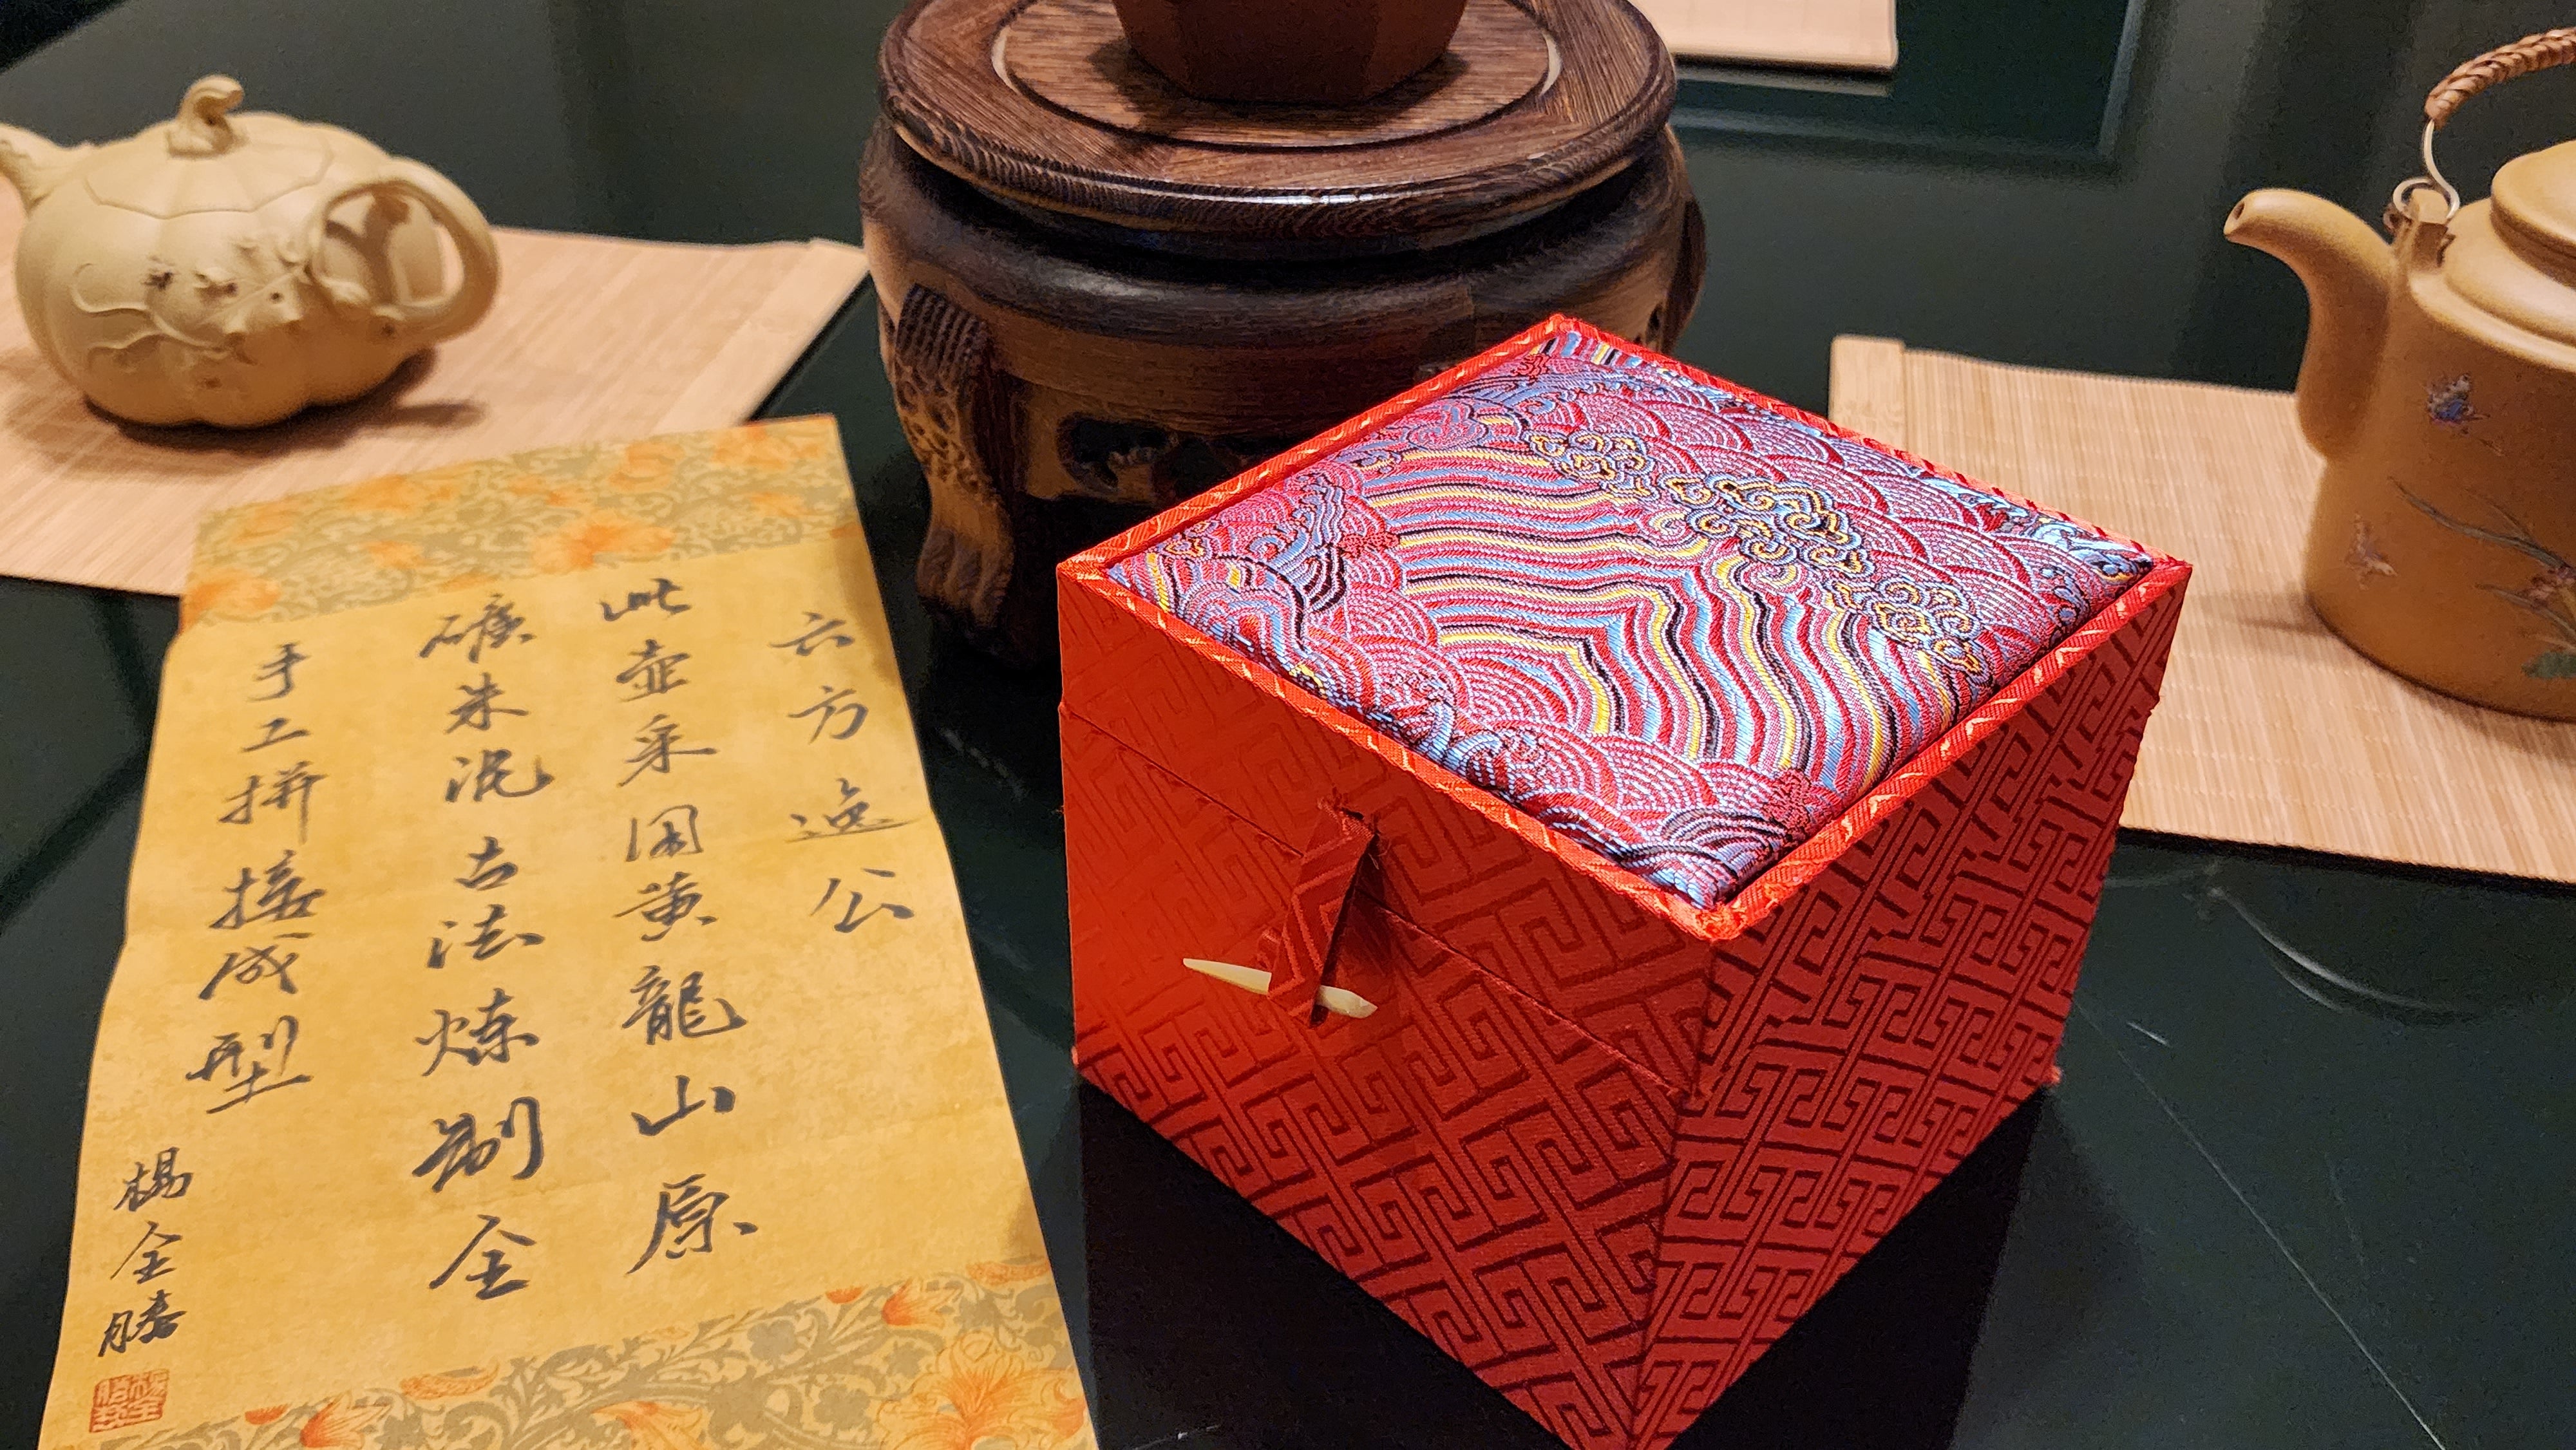 六方逸公
此壶采用黄龍山原
礦朱泥古法炼制全
手工拼接成型
楊全勝